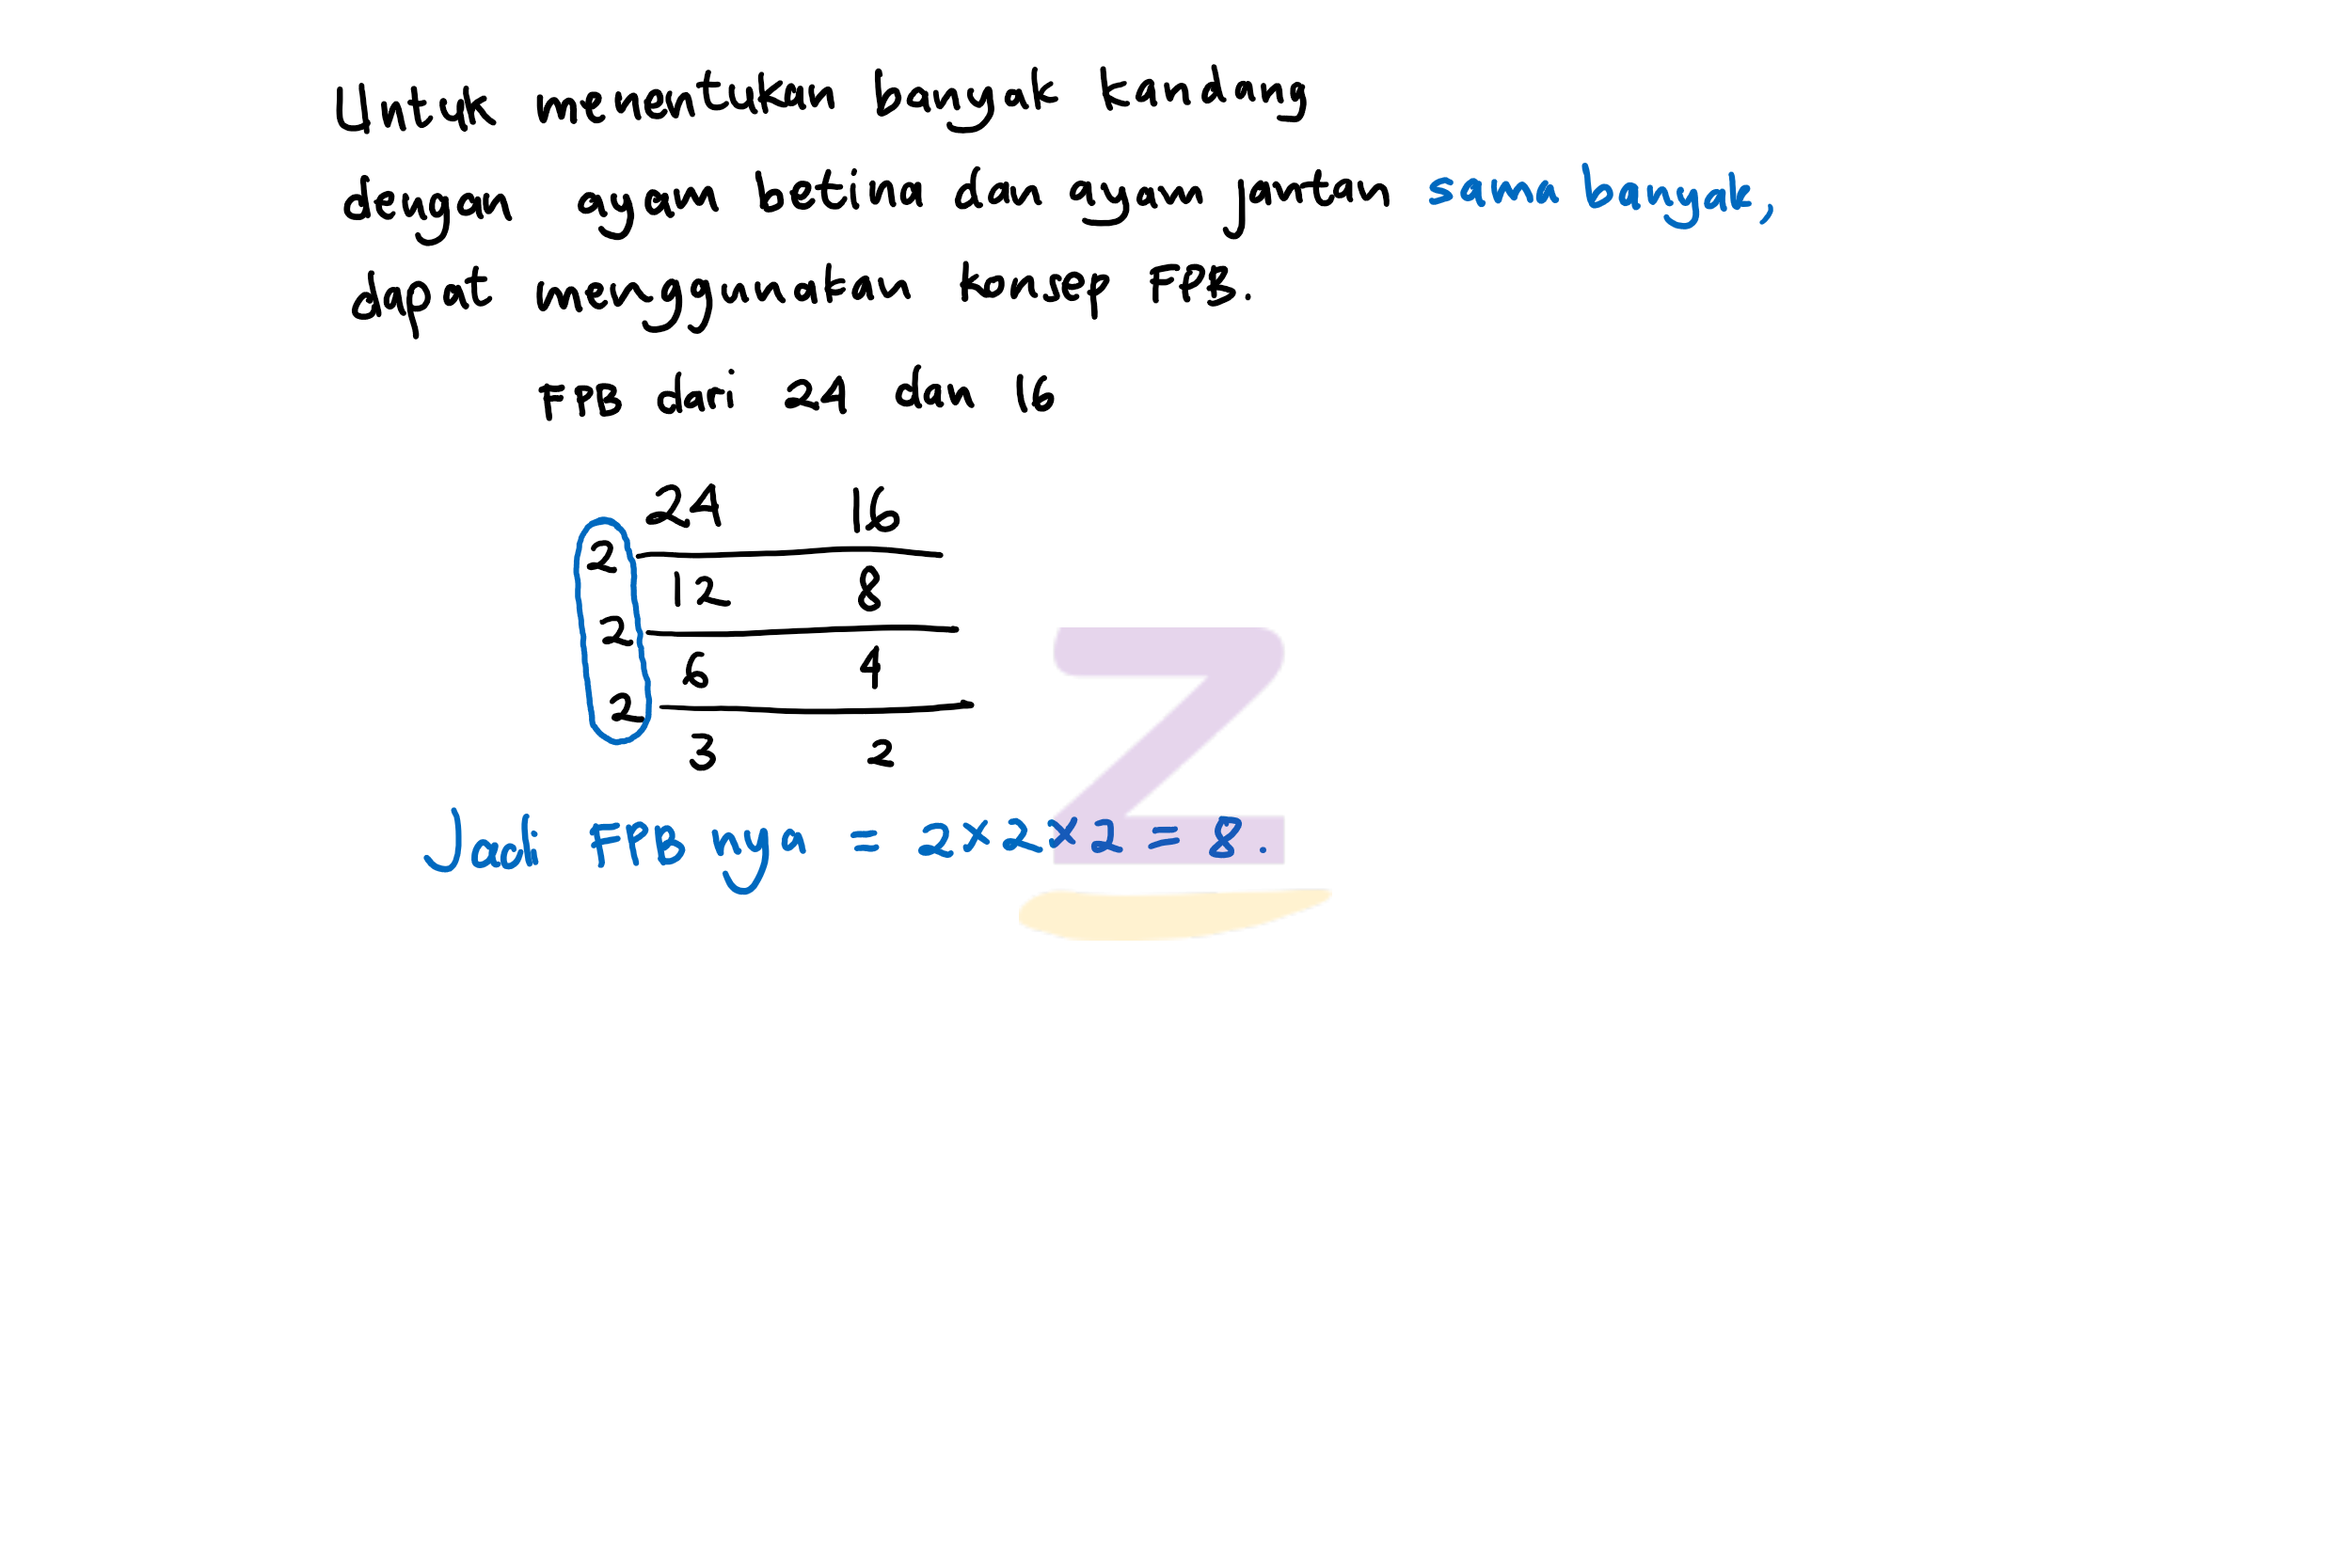 Untuk menentukan banyak kandang
dengan ayam betina dan ayam jantan sama banyak,
dapat menggunakan konsep FPB.
FPB dari 24 dan 16
24 16
2
12 8
2
6 4
2
3 2
Jadi FPB nya = 2 x 2 x 2 = 8.
Z